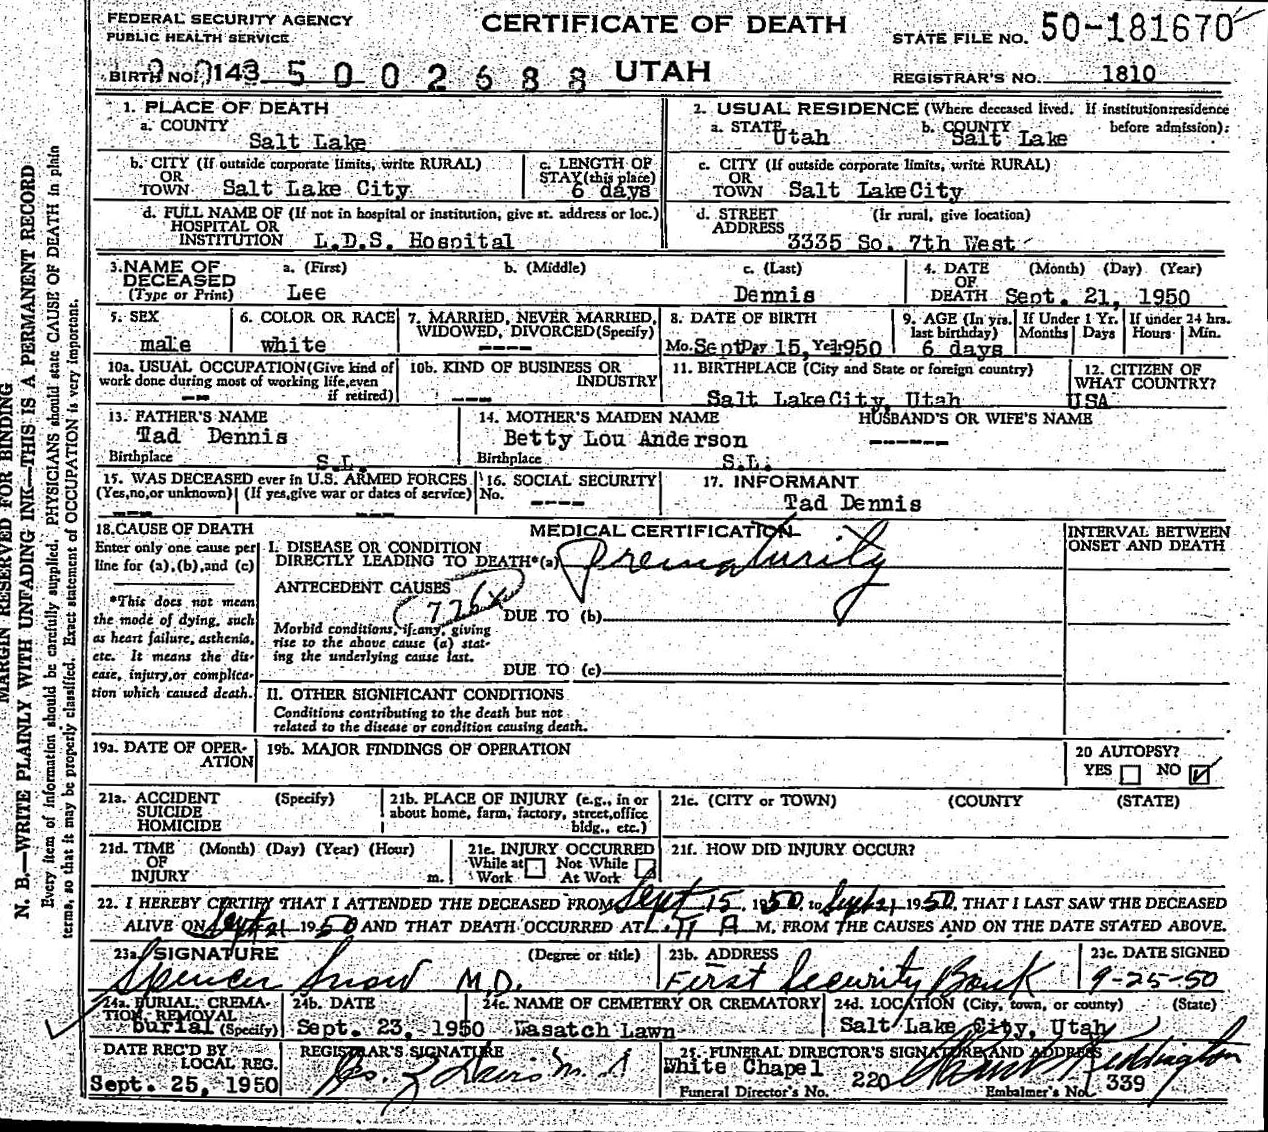 FEDERAL SECURITY AGENCY
PUBLIC HEALTH SERVICE
CERTIFICATE OF DEATH
STATE FILE NO. 50-181670
BIRTH NO. 143 5 0 0 2 6 8 8 UTAH
REGISTRAR'S NO. 1810
1. PLACE OF DEATH
a. COUNTY
Salt Lake
2. USUAL RESIDENCE (Where deceased lived. If institution:residence before admission):
a. STATE Utah b. COUNTY Salt Lake
b. CITY (If outside corporate limits, write RURAL)
OR
TOWN Salt Lake City
c. LENGTH OF
STAY (this place)
6 days
c. CITY (If outside corporate limits, write RURAL)
OR
TOWN Salt LakeCity
d. FULL NAME OF (If not in hospital or institution, give st. address or loc.)
HOSPITAL OR
INSTITUTION L.D.S. Hospital
d. STREET (Ir rural, give location)
ADDRESS
3335 So. 7th West
3. NAME OF DECEASED
(Type or Print)
a. (First)
Lee
b. (Middle)
c. (Last)
Dennis
4. DATE (Month) (Day) (Year)
OF
DEATH Sept. 21, 1950
5. SEX
male
6. COLOR OR RACE
white
7. MARRIED, NEVER MARRIED,
WIDOWED, DIVORCED (Specify)
----
8. DATE OF BIRTH
Mo. Sept Day 15, Yr. 1950
9. AGE (In yrs.
last birthday)
6 days
If Under 1 Yr.
Months Days
If under 24 hrs.
Hours Min.
10a. USUAL OCCUPATION (Give kind of
work done during most of working life, even
if retired)
--
10b. KIND OF BUSINESS OR
INDUSTRY
---
11. BIRTHPLACE (City and State or foreign country)
Salt LakeCity, Utah
12. CITIZEN OF
WHAT COUNTRY?
USA
13. FATHER'S NAME
Tad Dennis
Birthplace S.L.
14. MOTHER'S MAIDEN NAME
Betty Lou Anderson
Birthplace S.L.
HUSBAND'S OR WIFE'S NAME
------
15. WAS DECEASED ever in U.S. ARMED FORCES
(Yes, no, or unknown) (If yes, give war or dates of service)
---
16. SOCIAL SECURITY
No. ----
17. INFORMANT
Tad Dennis
18. CAUSE OF DEATH
Enter only one cause per
line for (a), (b), and (c)
*This does not mean
the mode of dying, such
as heart failure, asthenia,
etc. It means the dis-
ease, injury, or complica-
tion which caused death.
MEDICAL CERTIFICATION
I. DISEASE OR CONDITION
DIRECTLY LEADING TO DEATH*(a) Prematurity
ANTECEDENT CAUSES
DUE TO (b)
Morbid conditions, if any, giving
rise to the above cause (a) stat-
ing the underlying cause last.
DUE TO (c)
INTERVAL BETWEEN
ONSET AND DEATH
II. OTHER SIGNIFICANT CONDITIONS
Conditions contributing to the death but not
related to the disease or condition causing death.
19a. DATE OF OPER-
ATION
19b. MAJOR FINDINGS OF OPERATION
20 AUTOPSY?
YES NO
21a. ACCIDENT (Specify)
SUICIDE
HOMICIDE
21b. PLACE OF INJURY (e.g., in or
about home, farm, factory, street, office
bldg., etc.)
21c. (CITY or TOWN) (COUNTY) (STATE)
21d. TIME (Month) (Day) (Year) (Hour)
OF
INJURY m.
21e. INJURY OCCURRED
While at Not While
Work At Work
21f. HOW DID INJURY OCCUR?
22. I HEREBY CERTIFY THAT I ATTENDED THE DECEASED FROM Sept 15, 1950, to Sept 21 1950, THAT I LAST SAW THE DECEASED
ALIVE ON Sept 21 1950 AND THAT DEATH OCCURRED AT 11 A M, FROM THE CAUSES AND ON THE DATE STATED ABOVE.
23a. SIGNATURE (Degree or title)
Spencer Snow M.D.
23b. ADDRESS
First Security Bank
23c. DATE SIGNED
9-25-50
24a. BURIAL, CREMA-
TION, REMOVAL
burial (Specify)
24b. DATE
Sept. 23, 1950
24c. NAME OF CEMETERY OR CREMATORY
Wasatch Lawn
24d. LOCATION (City, town, or county) (State)
Salt Lake City, Utah
DATE REC'D BY
LOCAL REG.
Sept. 25, 1950
REGISTRAR'S SIGNATURE
25. FUNERAL DIRECTOR'S SIGNATURE AND ADDRESS
White Chapel
Funeral Director's No. 220
Embalmer's No. 339
MARGIN RESERVED FOR BINDING
N. B.—WRITE PLAINLY WITH UNFADING INK—THIS IS A PERMANENT RECORD
Every item of information should be carefully supplied. PHYSICIANS should state CAUSE OF DEATH in plain
terms, so that it may be properly classified. Exact statement of OCCUPATION is very important.